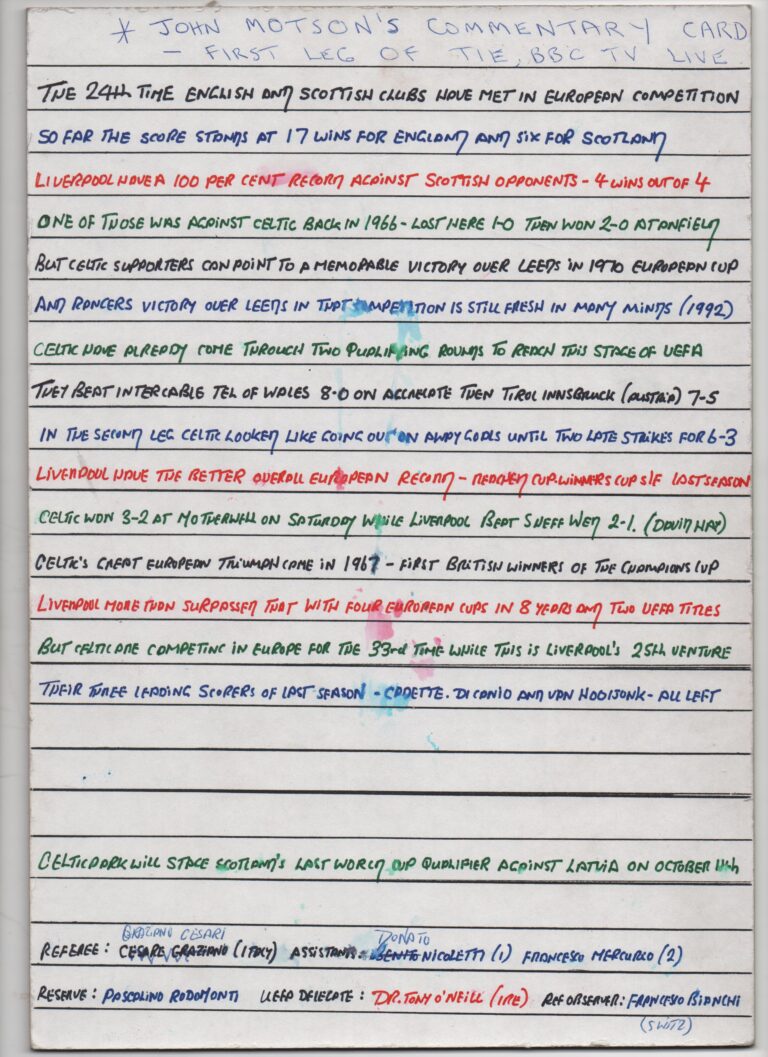 * JOHN MOTSON'S COMMENTARY CARD
- FIRST LEG OF TIE, BBC TV LIVE
THE 24th TIME ENGLISH AND SCOTTISH CLUBS HAVE MET IN EUROPEAN COMPETITION
SO FAR THE SCORE STANDS AT 17 WINS FOR ENGLAND AND SIX FOR SCOTLAND
LIVERPOOL HAVE A 100 PER CENT RECORD AGAINST SCOTTISH OPPONENTS - 4 WINS OUT OF 4
ONE OF THOSE WAS AGAINST CELTIC BACK IN 1966 - LOST HERE 1-0 THEN WON 2-0 AT ANFIELD
BUT CELTIC SUPPORTERS CAN POINT TO A MEMORABLE VICTORY OVER LEEDS IN 1970 EUROPEAN CUP
AND RANGERS VICTORY OVER LEEDS IN THAT COMPETITION IS STILL FRESH IN MANY MINDS (1992)
CELTIC HAVE ALREADY COME THROUGH TWO QUALIFYING ROUNDS TO REACH THIS STAGE OF UEFA
THEY BEAT INTERCABLE TEL OF WALES 8-0 ON AGGREGATE THEN TIROL INNSBRUCK (AUSTRIA) 7-5
IN THE SECOND LEG CELTIC LOOKED LIKE GOING OUT ON AWAY GOALS UNTIL TWO LATE STRIKES FOR 6-3
LIVERPOOL HAVE THE BETTER OVERALL EUROPEAN RECORD - REACHED CUP-WINNERS CUP S/F LAST SEASON
CELTIC WON 3-2 AT MOTHERWELL ON SATURDAY WHILE LIVERPOOL BEAT SHEFF WED 2-1. (DAVID HAY)
CELTIC'S GREAT EUROPEAN TRIUMPH CAME IN 1967 - FIRST BRITISH WINNERS OF THE CHAMPIONS CUP
LIVERPOOL MORE THAN SURPASSED THAT WITH FOUR EUROPEAN CUPS IN 8 YEARS AND TWO UEFA TITLES
BUT CELTIC ARE COMPETING IN EUROPE FOR THE 33rd TIME WHILE THIS IS LIVERPOOL'S 25th VENTURE
THEIR THREE LEADING SCORERS OF LAST SEASON - CADETTE. DI CANIO AND VAN HOOIJDONK - ALL LEFT
CELTIC PARK WILL STAGE SCOTLAND'S LAST WORLD CUP QUALIFIER AGAINST LATVIA ON OCTOBER 11th
GRAZIANO CESARI DONATO
REFEREE: CESARE GRAZIANO (ITALY) ASSISTANTS: BENITO NICOLETTI (1) FRANCESCO MERCURIO (2)
RESERVE: PASCALINO RODOMONTI UEFA DELEGATE: DR. TONY O'NEILL (IRE) REF OBSERVER: FRANCESCO BIANCHI
(SWITZ)